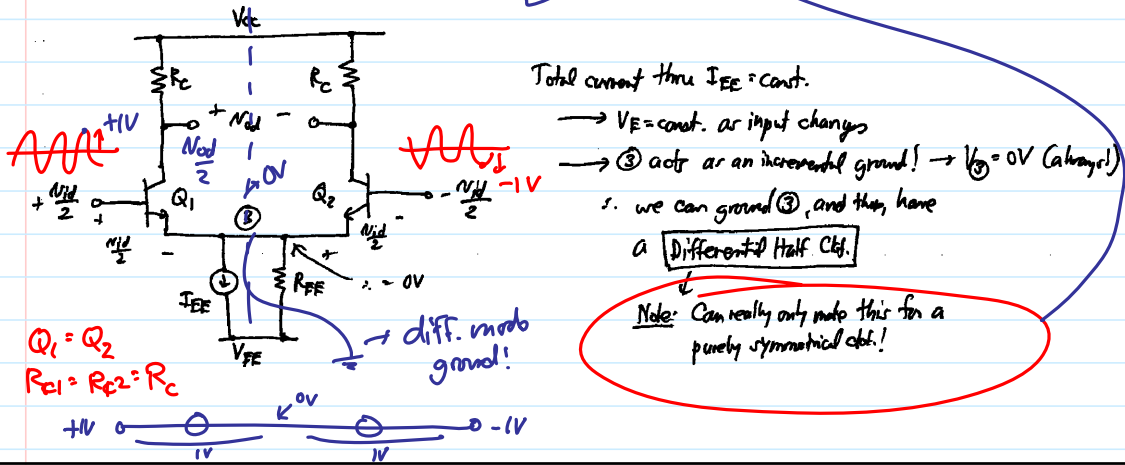 Vcc
Rc
Rc
+ Nod -
+1V
Nod/2
0V
-1V
+ Nid/2
+
Q1
Q2
- Nid/2
-
3
Nid/2
-
+
Nid/2
IEE
REE
∴ = 0V
VEE
→ diff. mode
ground!
Q1 = Q2
Rc1 = Rc2 = Rc
+1V
0V
-1V
1V
1V
Total current thru IEE = const.
→ VE = const. as input changes
→ ③ acts as an incremental ground! → V③ = 0V (always!)
∴ we can ground ③, and then, have
a Differential Half Ckt.
Note: Can really only make this for a
purely symmetrical ckt.!